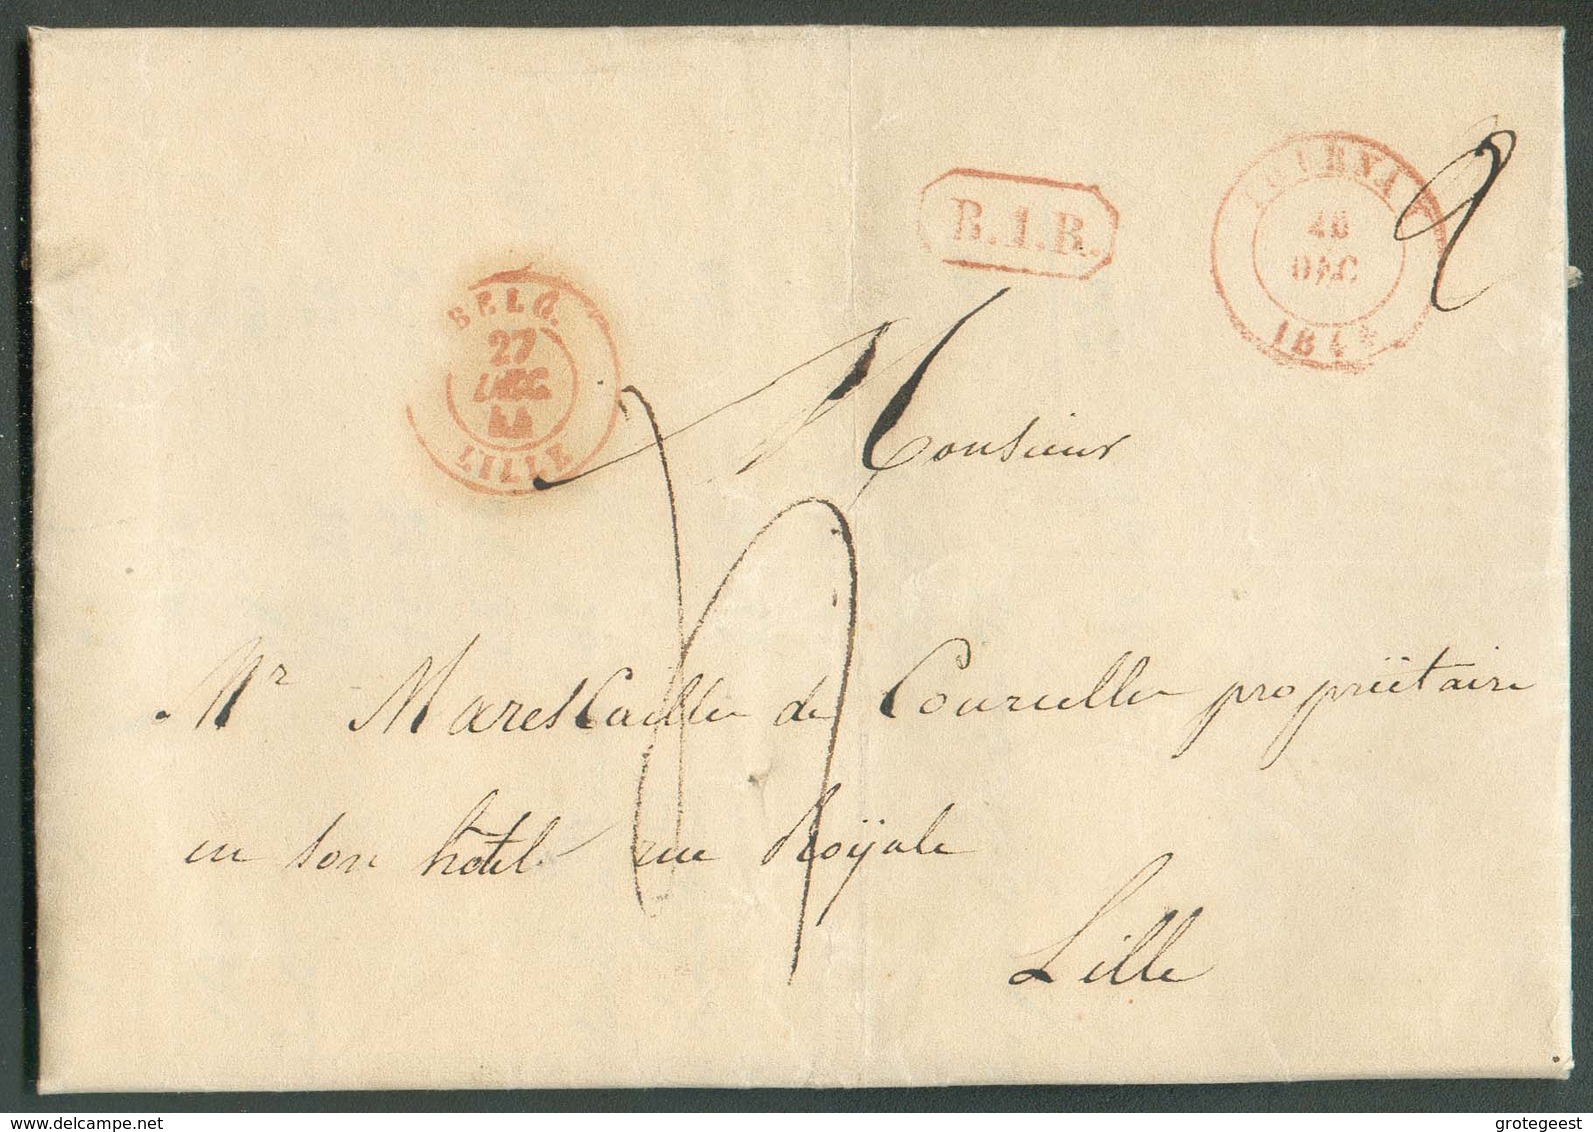 TOURNAY
DEC
184
B.1.R.
BELG.
27
DEC
44
LILLE
2
Monsieur
Mr MaresCaille de Courcelle propriëtaire
en son hôtel rue Roÿale
Lille
delcampe.net
grotegeest